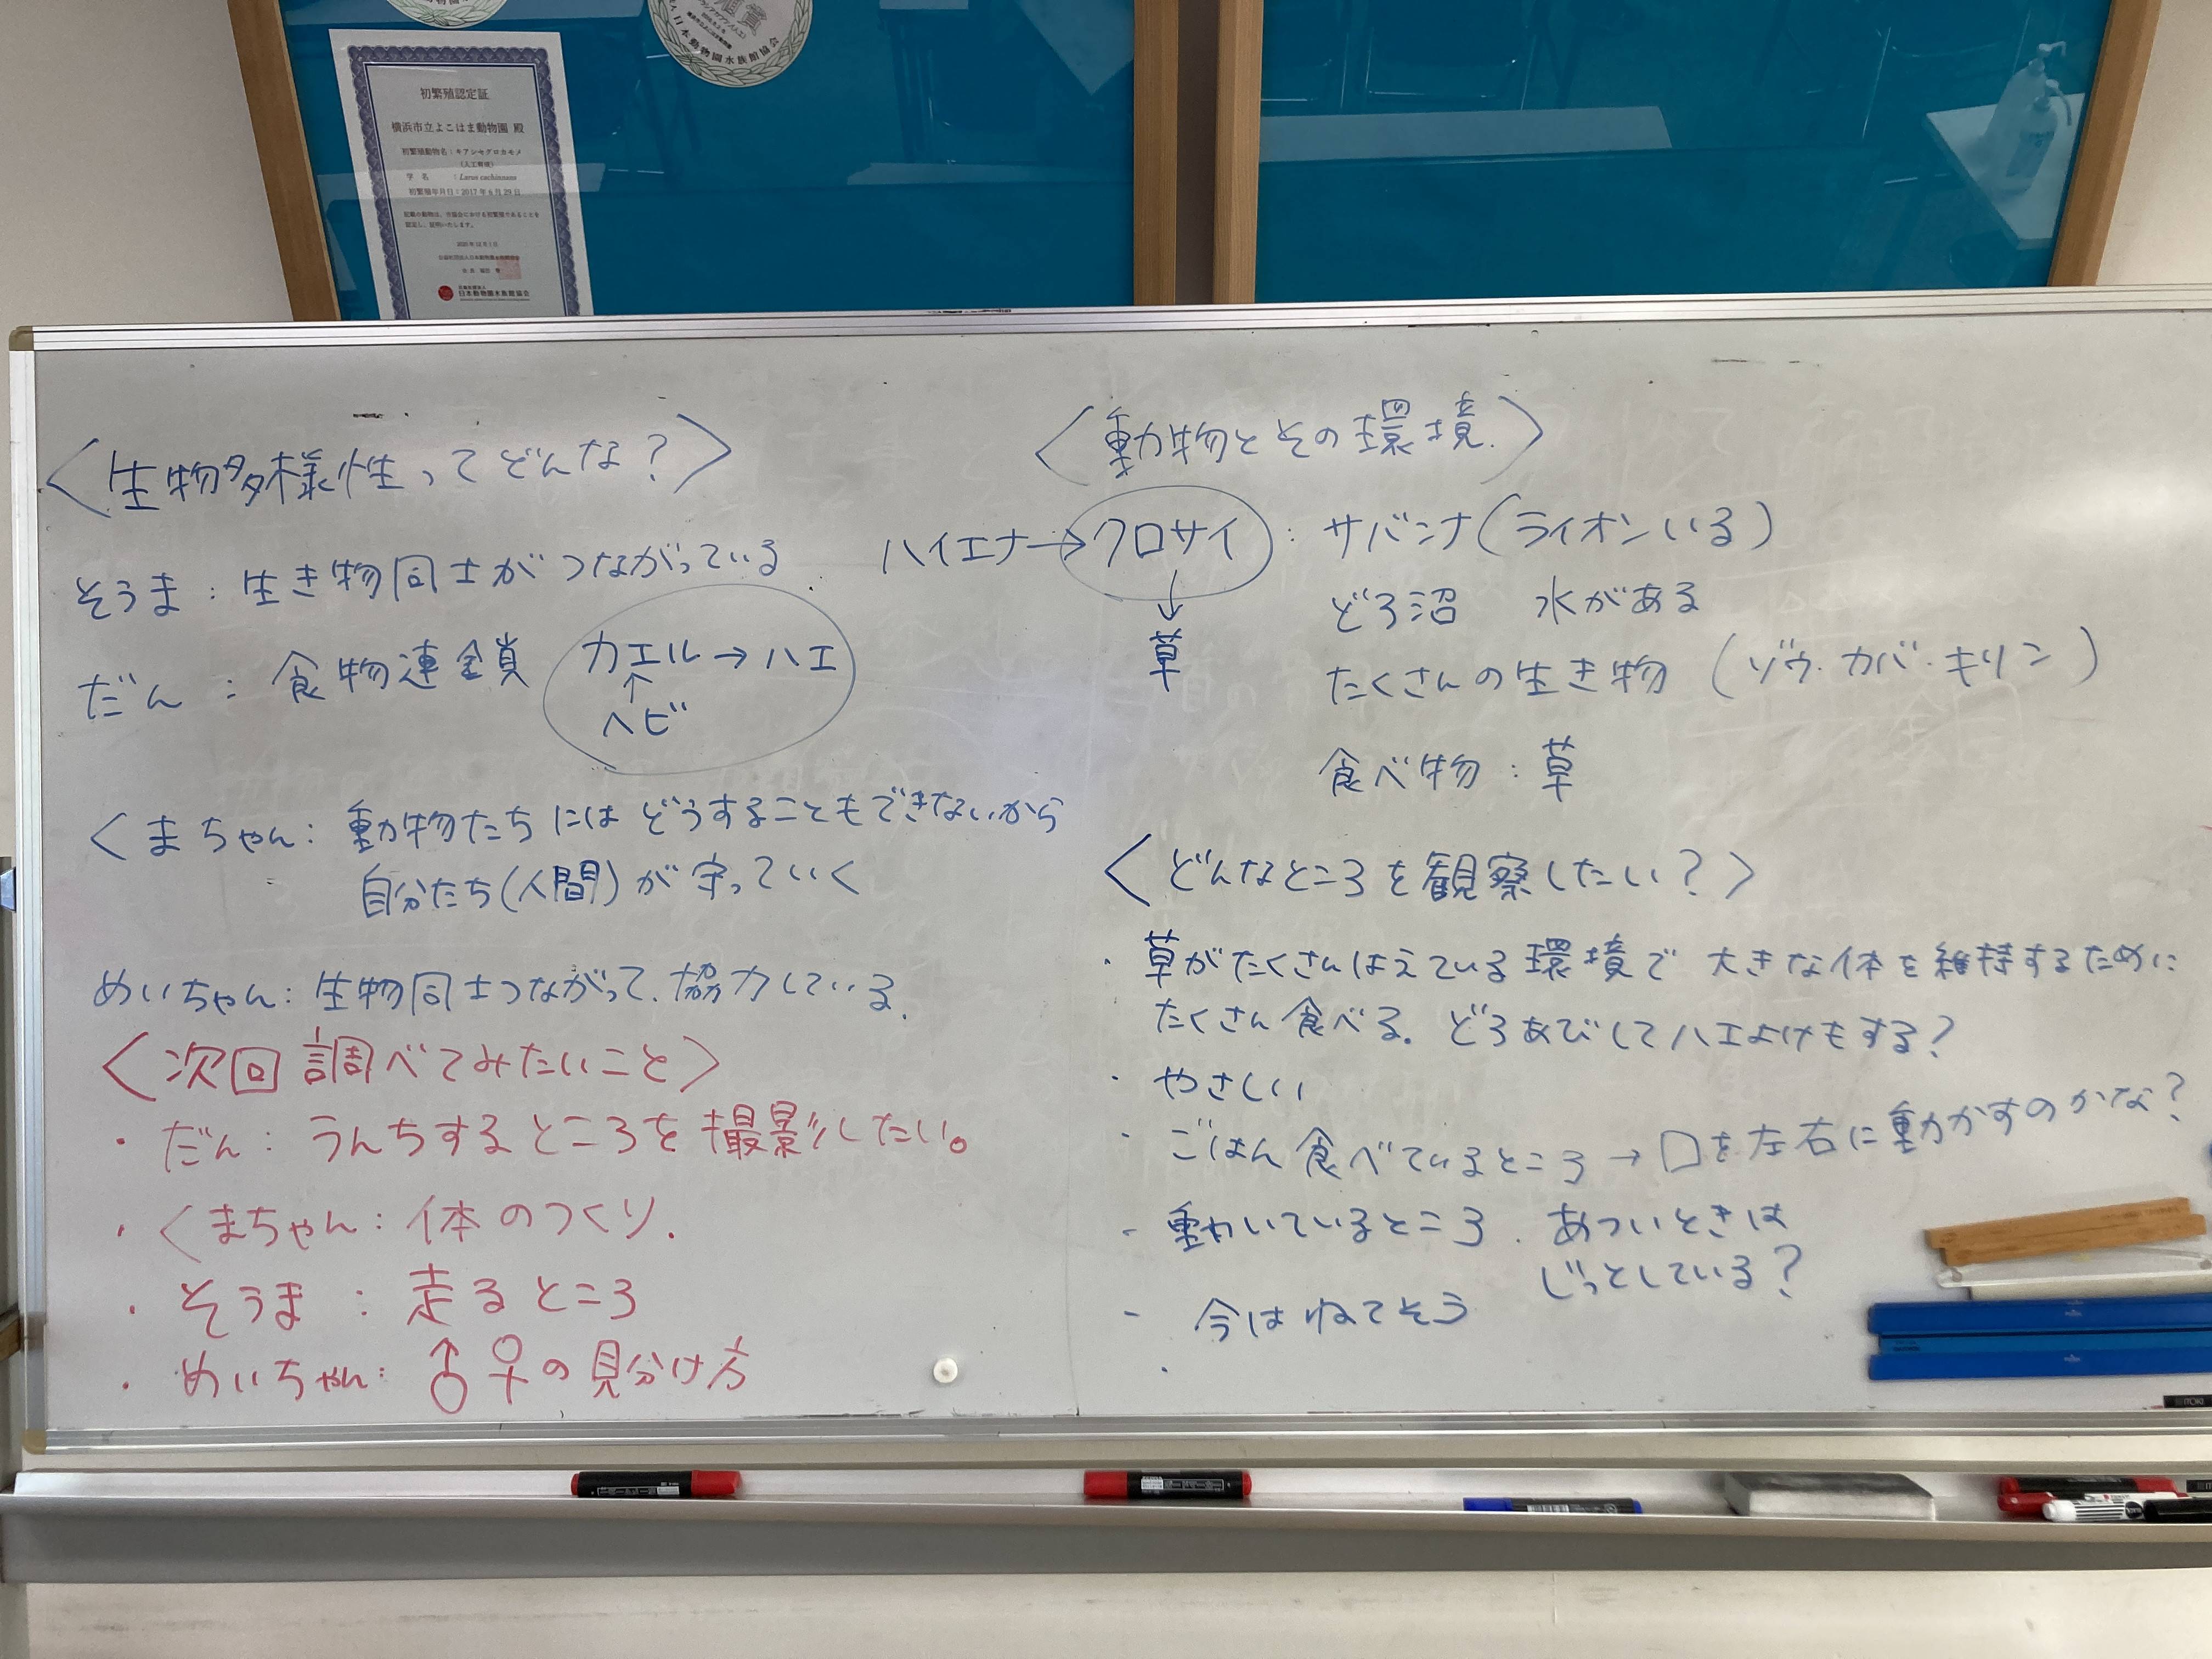 祖賞
日本動物園水族館協会
初繁殖認定証
横浜市立よこはま動物園 殿
初繁殖動物名：キアシセグロカモメ
（人工育雛）
学 名 ：Larus cachinnans
初繁殖年月日：2017年6月29日
記載の動物は、当協会における初繁殖であることを
認定し、証明いたします。
日本動物園水族館協会
〈生物多様性ってどんな？〉
そうま：生き物同士がつながっている
だん：食物連鎖
カエル→ハエ
↑
ヘビ
くまちゃん：動物たちにはどうすることもできないから
自分たち(人間)が守っていく
めいちゃん：生物同士つながって、協力している。
〈次回調べてみたいこと〉
・だん：うんちするところを撮影したい。
・くまちゃん：体のつくり.
・そうま：走るところ
・めいちゃん：♂♀の見分け方
〈動物とその環境.〉
ハイエナ→クロサイ：サバンナ(ライオンいる)
↓
草
どろ沼 水がある
たくさんの生き物 (ゾウ・カバ・キリン)
食べ物：草
〈どんなところを観察したい？〉
・草がたくさんはえている環境で 大きな体を維持するために
たくさん食べる。どろあびしてハエよけもする？
・やさしい
・ごはん食べているところ→口を左右に動かすのかな？
・動いているところ. あついときは
じっとしている？
・今はねてそう
・